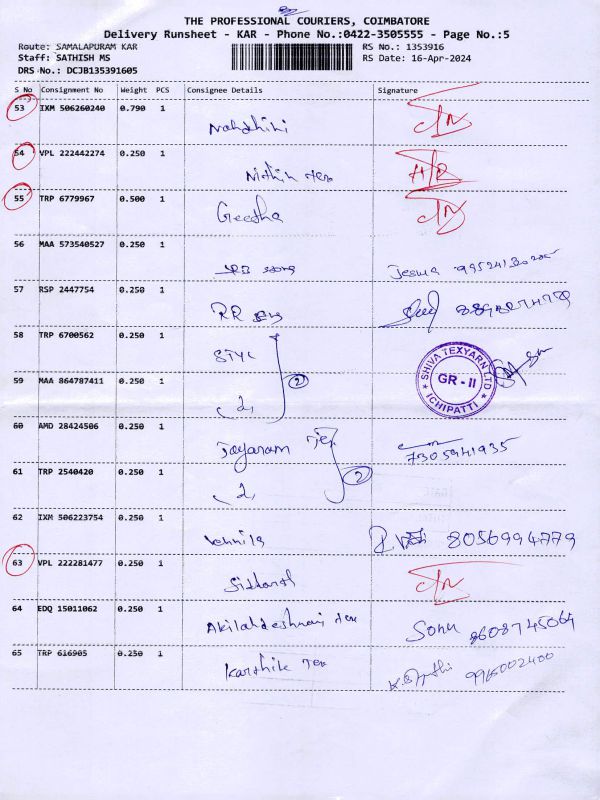 THE PROFESSIONAL COURIERS, COIMBATORE
Delivery Runsheet - KAR - Phone No.:0422-3505555 - Page No.:5
Route: SAMALAPURAM KAR
RS No.: 1353916
Staff: SATHISH MS
RS Date: 16-Apr-2024
DRS No.: DCJB135391605
S No Consignment No Weight PCS Consignee Details Signature
53 IXM 506260240 0.790 1
54 VPL 222442274 0.250 1 Nithin Tex
55 TRP 6779967 0.500 1 Geetha
56 MAA 573540527 0.250 1 Jesma
57 RSP 2447754 0.250 1 RR
58 TRP 6700562 0.250 1 STYL
SHIVA TEXYARN LTD
GR - II
ICHIPATTI
59 MAA 864787411 0.250 1 2
60 AMD 28424506 0.250 1 Jayaram Tex 7305941935
61 TRP 2540420 0.250 1 2
62 IXM 506223754 0.250 1 Vennila 8056994779
63 VPL 222281477 0.250 1 Sidharth
64 EDQ 15011062 0.250 1 Tex Sonu 8608745064
65 TRP 616905 0.250 1 Karthik Tex 9965002400